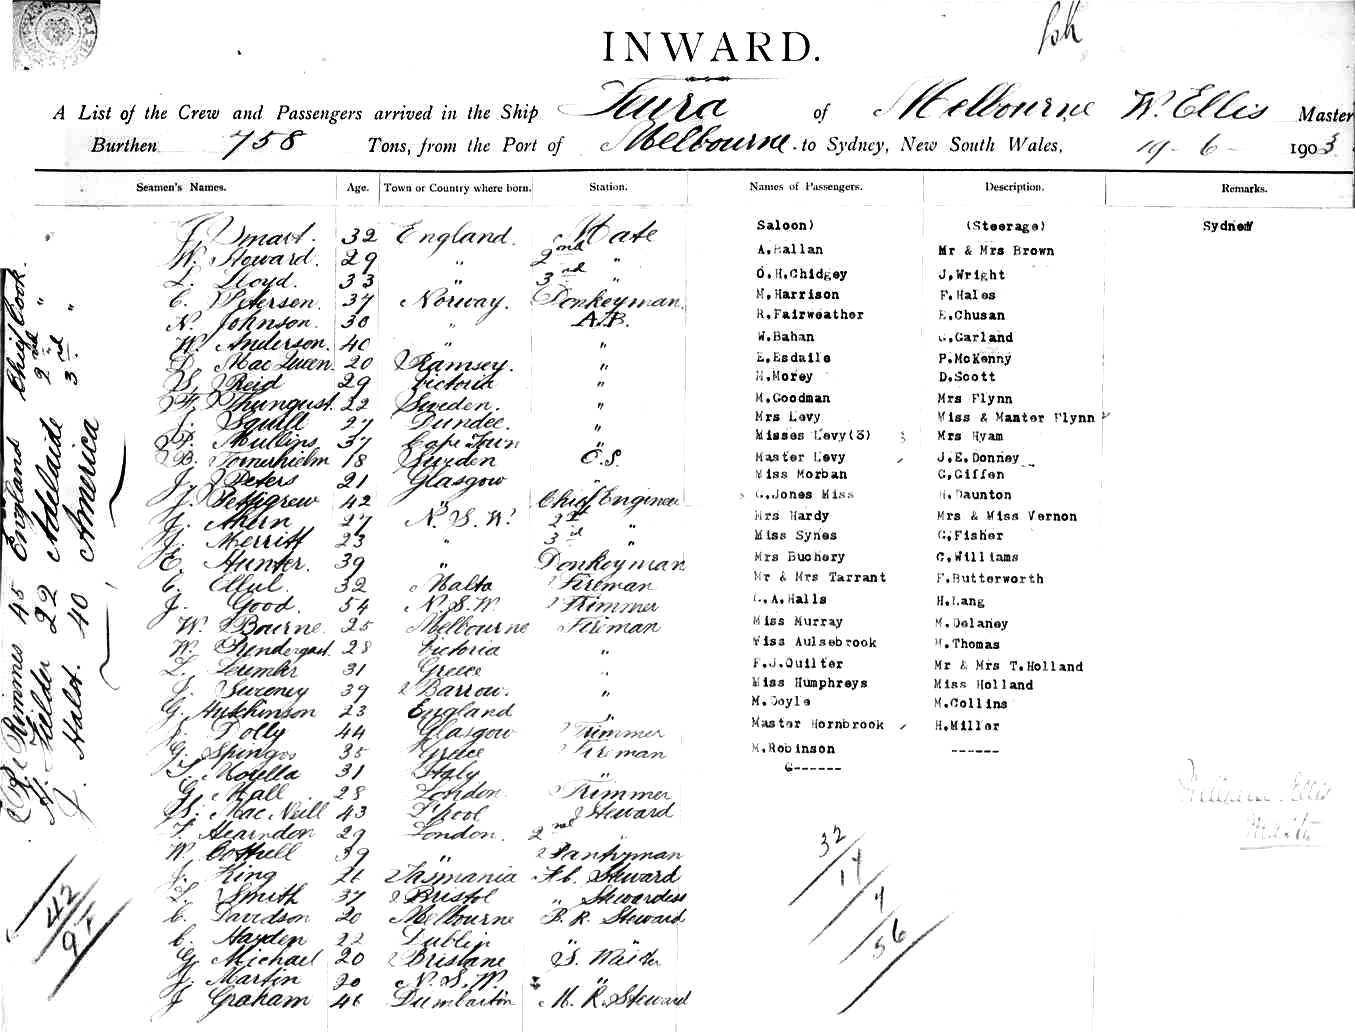 INWARD.
A List of the Crew and Passengers arrived in the Ship Tuura of Melbourne W. Ellis Master
Burthen 758 Tons, from the Port of Melbourne to Sydney, New South Wales, 19 - 6 - 1903
Seamen's Names. Age. Town or Country where born. Station. Names of Passengers. Description. Remarks.
J. Smart. 32 England. Mate
W. Howard. 29 " 2nd "
L. Lloyd. 33 " 3rd "
C. Petersen. 37 Norway. Donkeyman.
N. Johnson. 30 " A.B.
W. Anderson. 40 " "
D. MacQueen. 20 Ramsey. "
Reid 29 Victoria "
22 Sweden. "
J. Squill 27 Dundee. "
P. Mullins 37 Cape Town "
B. 18 Sweden O.S.
J. Peters 21 Glasgow
J. Pettigrew 42 " Chief Engineer
J. Ahern 27 N. S. W. 2nd "
J. Merritt 23 " 3rd "
E. Hunter. 39 " Donkeyman
C. Ellul. 32 Malta Fireman
J. Good. 54 N.S.W. Trimmer
W. Bourne. 25 Melbourne Fireman
W. Prendergast. 28 Victoria "
L. 31 Greece "
J. Sweeney 39 Barrow. "
G. Hutchinson 23 England "
J. Dolly 44 Glasgow Trimmer
G. Spingos 35 Greece Fireman
Morella 31 Italy "
G. Hall 28 London. Trimmer
MacNeill 43 L'pool Steward
F. Hearndon 29 London. 2nd "
W. Cottrell 39 " Pantryman
J. King 26 Tasmania F.C. Steward
L. Smith 37 Bristol " Stewardess
C. Davidson 20 Melbourne B. R. Steward
C. Hayden 22 Dublin "
G. Michael 20 Brisbane S. Waiter
J. Martin 20 N. S. W. "
J Graham 46 Dumbarton M. R. Steward
Saloon) (Steerage) Sydney
A.Hallan Mr & Mrs Brown
O.H.Chidgey J.Wright
M.Harrison F.Hales
R.Fairweather E.Chusan
W.Bahan G.Garland
E.Esdaile P.McKenny
M.Morey D.Scott
M.Goodman Mrs Flynn
Mrs Levy Miss & Master Flynn
Misses Levy(3) 3 Mrs Hyam
Master Levy J.E.Donney
Miss Morban G.Giffen
G.Jones Miss H.Daunton
Mrs Hardy Mrs & Miss Vernon
Miss Synes C.Fisher
Mrs Buchery C.Williams
Mr & Mrs Tarrant F.Butterworth
A.Halls H.Lang
Miss Murray M.Delaney
Miss Aulsebrook M.Thomas
F.J.Quilter Mr & Mrs T.Holland
Miss Humphreys Miss Holland
M.Doyle M.Collins
Master Hornbrook H.Miller
M.Robinson ------
G------
R. Rimmes 45 England Chief Cook.
H. Fielder 22 Adelaide 2nd "
J. Halst. 40 America 3rd "
42
97
32
17
7
56
William Ellis
Master